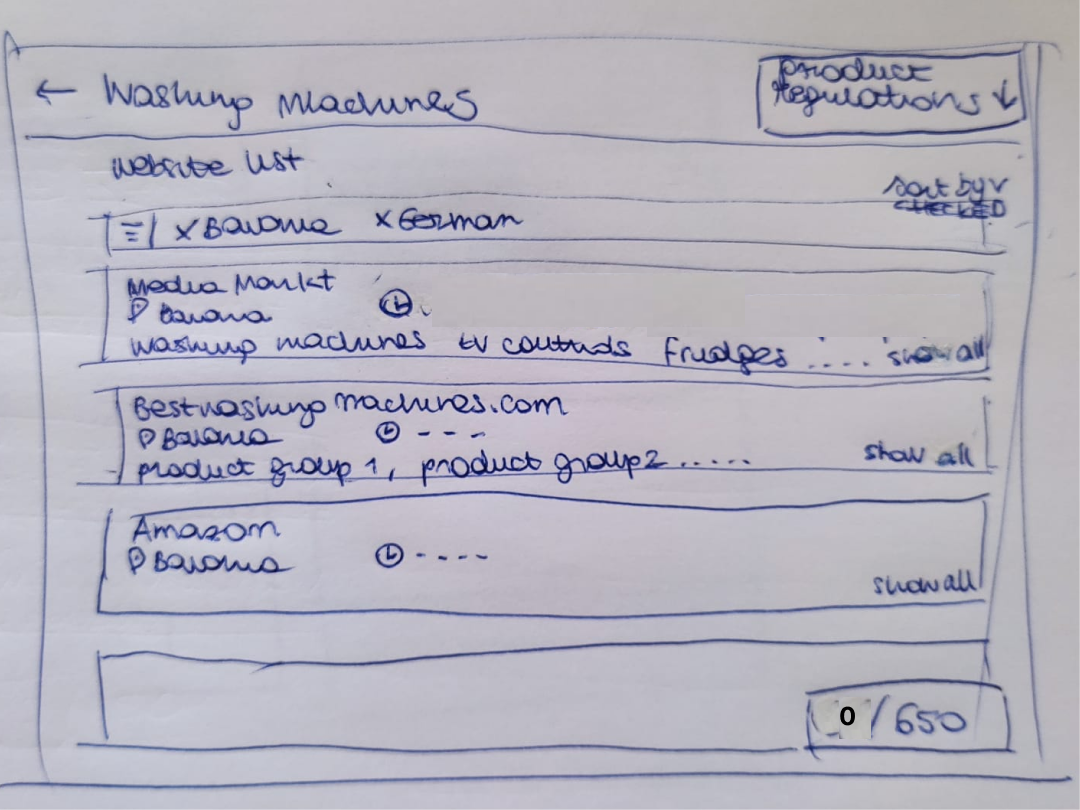 ← Washing Machines
Product Regulations ↓
Website list
Sort by v
CHECKED
x Bavaria x German
Media Markt
Bavaria
washing machines tv controls Fridges ..... show all
Bestwashing machines.com
Bavaria - - -
product group 1, product group 2 ..... show all
Amazon
Bavaria - - - -
show all
0 / 650